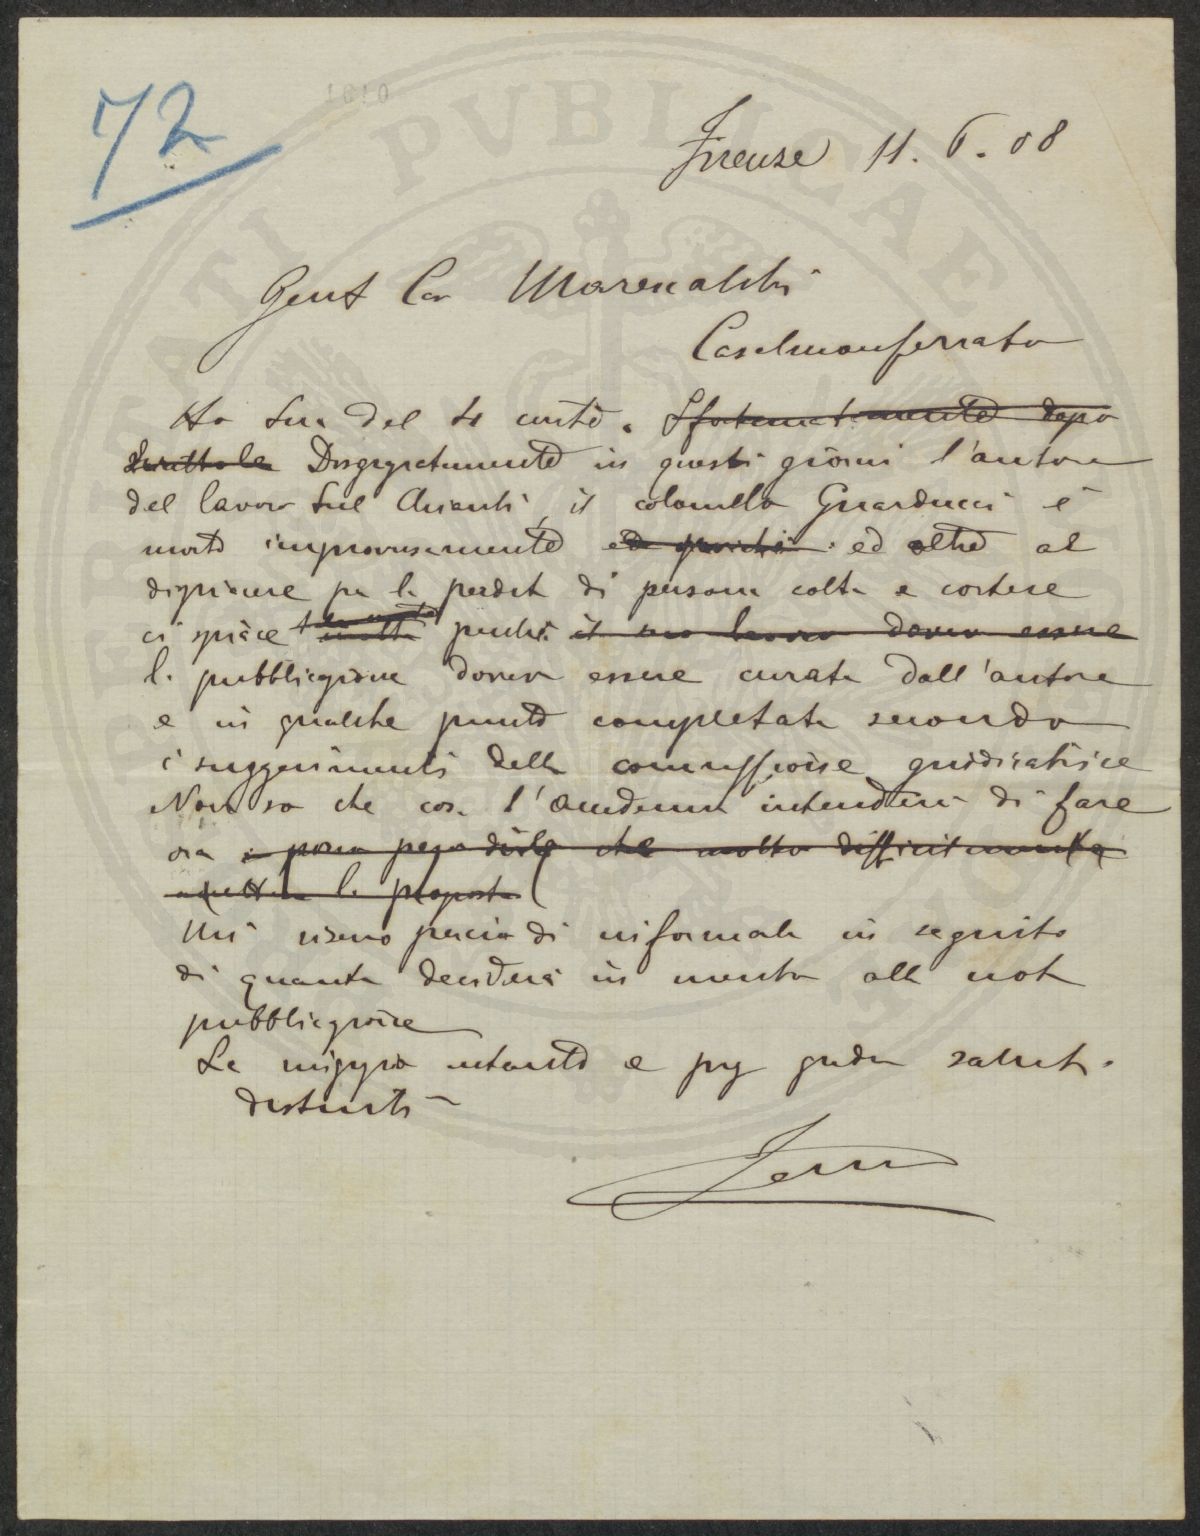 72
Firenze 11. 6. 08
Gent Cav Marescalchi
Casalmonferrato
Ho sua del 4 corrte. Sfortunatamente dopo
Disgrgratamente in questi giorni l'autore
del lavoro sul Chianti, il colonnello Guarducci è
morto improvvisamente ed oltre al
dispiacere per la perdita di persona colta e cortese
ci spiace molto perchè il suo lavoro doveva essere
la pubblicazione doveva essere curata dall'autore
e in qualche punto completata secondo
i suggerimenti della commissione giudicatrice
Non so che cosa l'Accademia intenderà di fare
ora e posso però dirle che molto difficilmente
accetterà la proposta
Mi riservo perciò di informarla in seguito
di quanto deciderà in merito alla nota
pubblicazione
La ringrazio intanto e prg gradire saluti
distinti